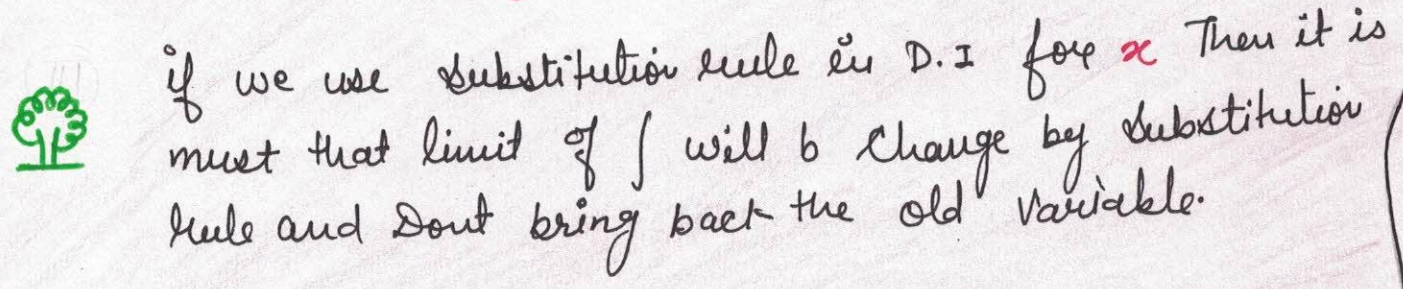 if we use substitution rule in D.I for x Then it is
must that limit of ∫ will b Change by substitution
Rule and Dont bring back the old variable.